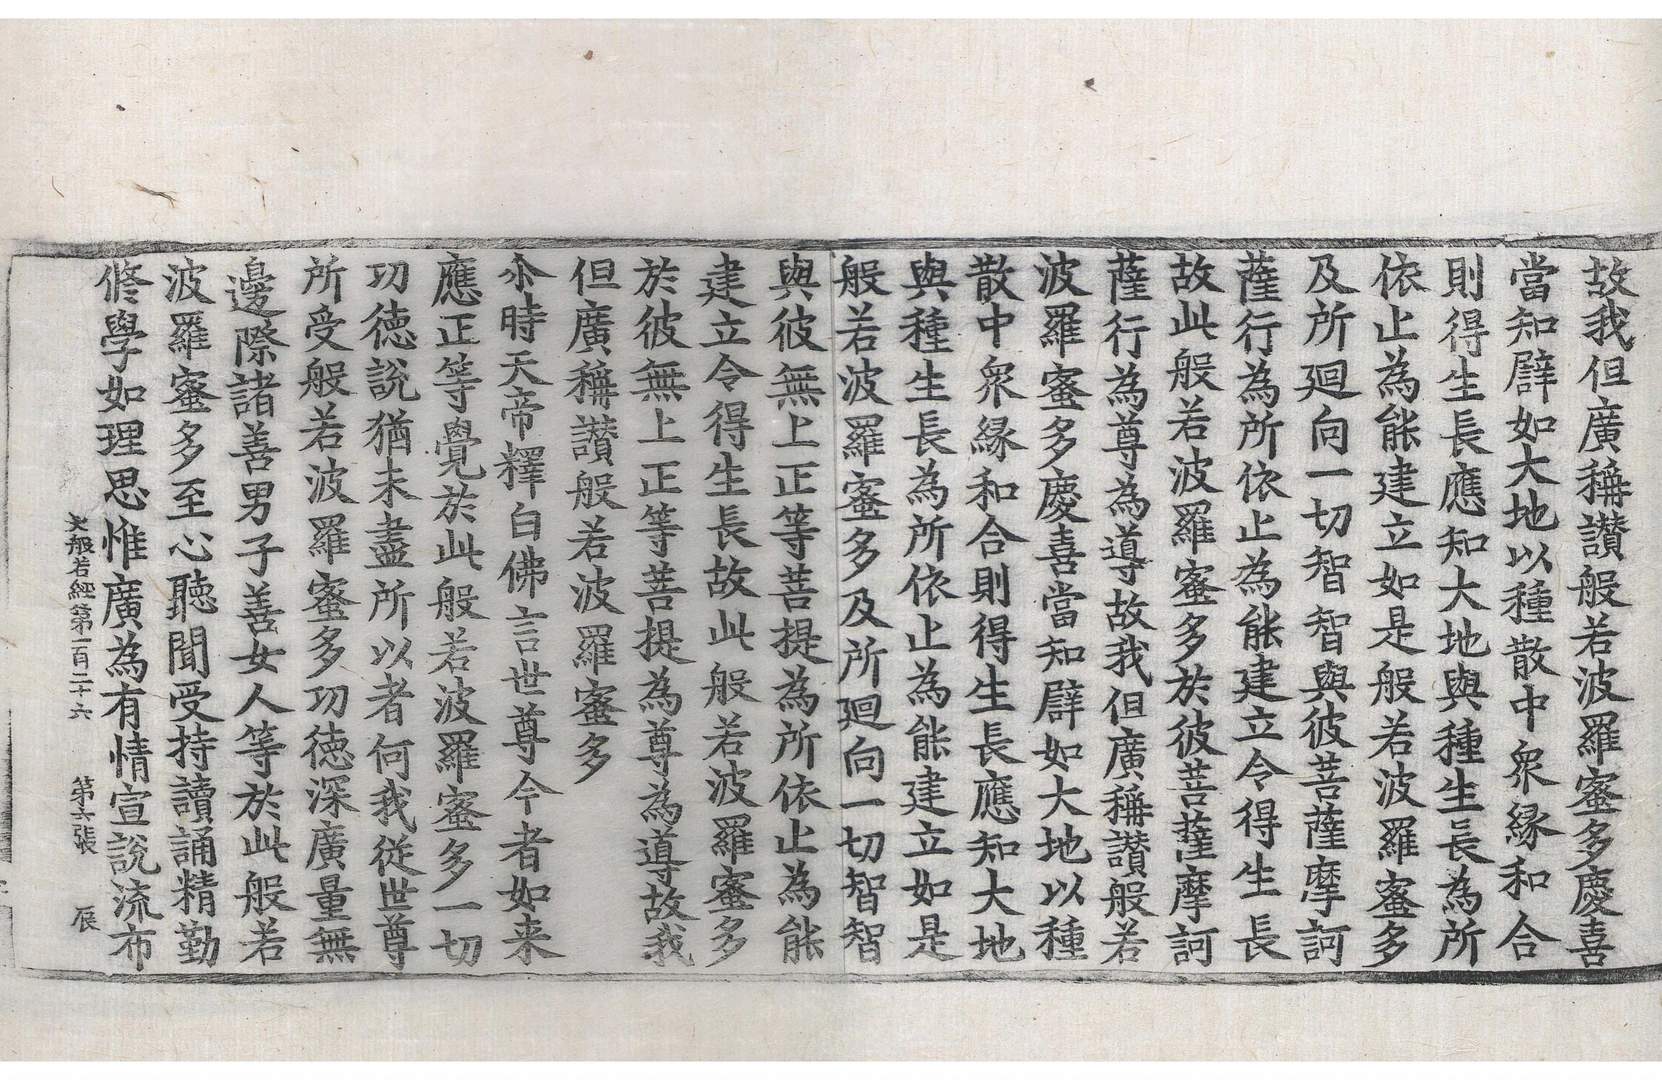 故我但廣稱讚般若波羅蜜多慶喜
當知譬如大地以種散中眾緣和合
則得生長應知大地與種生長為所
依止為能建立如是般若波羅蜜多
及所迴向一切智智與彼菩薩摩訶
薩行為所依止為能建立令得生長
故此般若波羅蜜多於彼菩薩摩訶
薩行為尊為導故我但廣稱讚般若
波羅蜜多慶喜當知譬如大地以種
散中眾緣和合則得生長應知大地
與種生長為所依止為能建立如是
般若波羅蜜多及所迴向一切智智
與彼無上正等菩提為所依止為能
建立令得生長故此般若波羅蜜多
於彼無上正等菩提為尊為導故我
但廣稱讚般若波羅蜜多
尒時天帝釋白佛言世尊今者如来
應正等覺於此般若波羅蜜多一切
功德說猶未盡所以者何我從世尊
所受般若波羅蜜多功德深廣量無
邊際諸善男子善女人等於此般若
波羅蜜多至心聽聞受持讀誦精勤
修學如理思惟廣為有情宣說流布
大般若經第一百二十六 第六張 辰